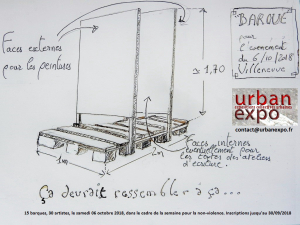 Faces externes
pour les peintures
≃ 1,70
BARQUE
pour
l'évènement
du 6/10/2018
Villeneuve
urban
expo
contact@urbanexpo.fr
1m
2m
Faces internes
éventuellement pour
les textes des ateliers
d'écriture.
Ça devrait ressembler à ça...
15 barques, 30 artistes, le samedi 06 octobre 2018, dans le cadre de la semaine pour la non-violence. Inscriptions jusqu'au 08/09/2018